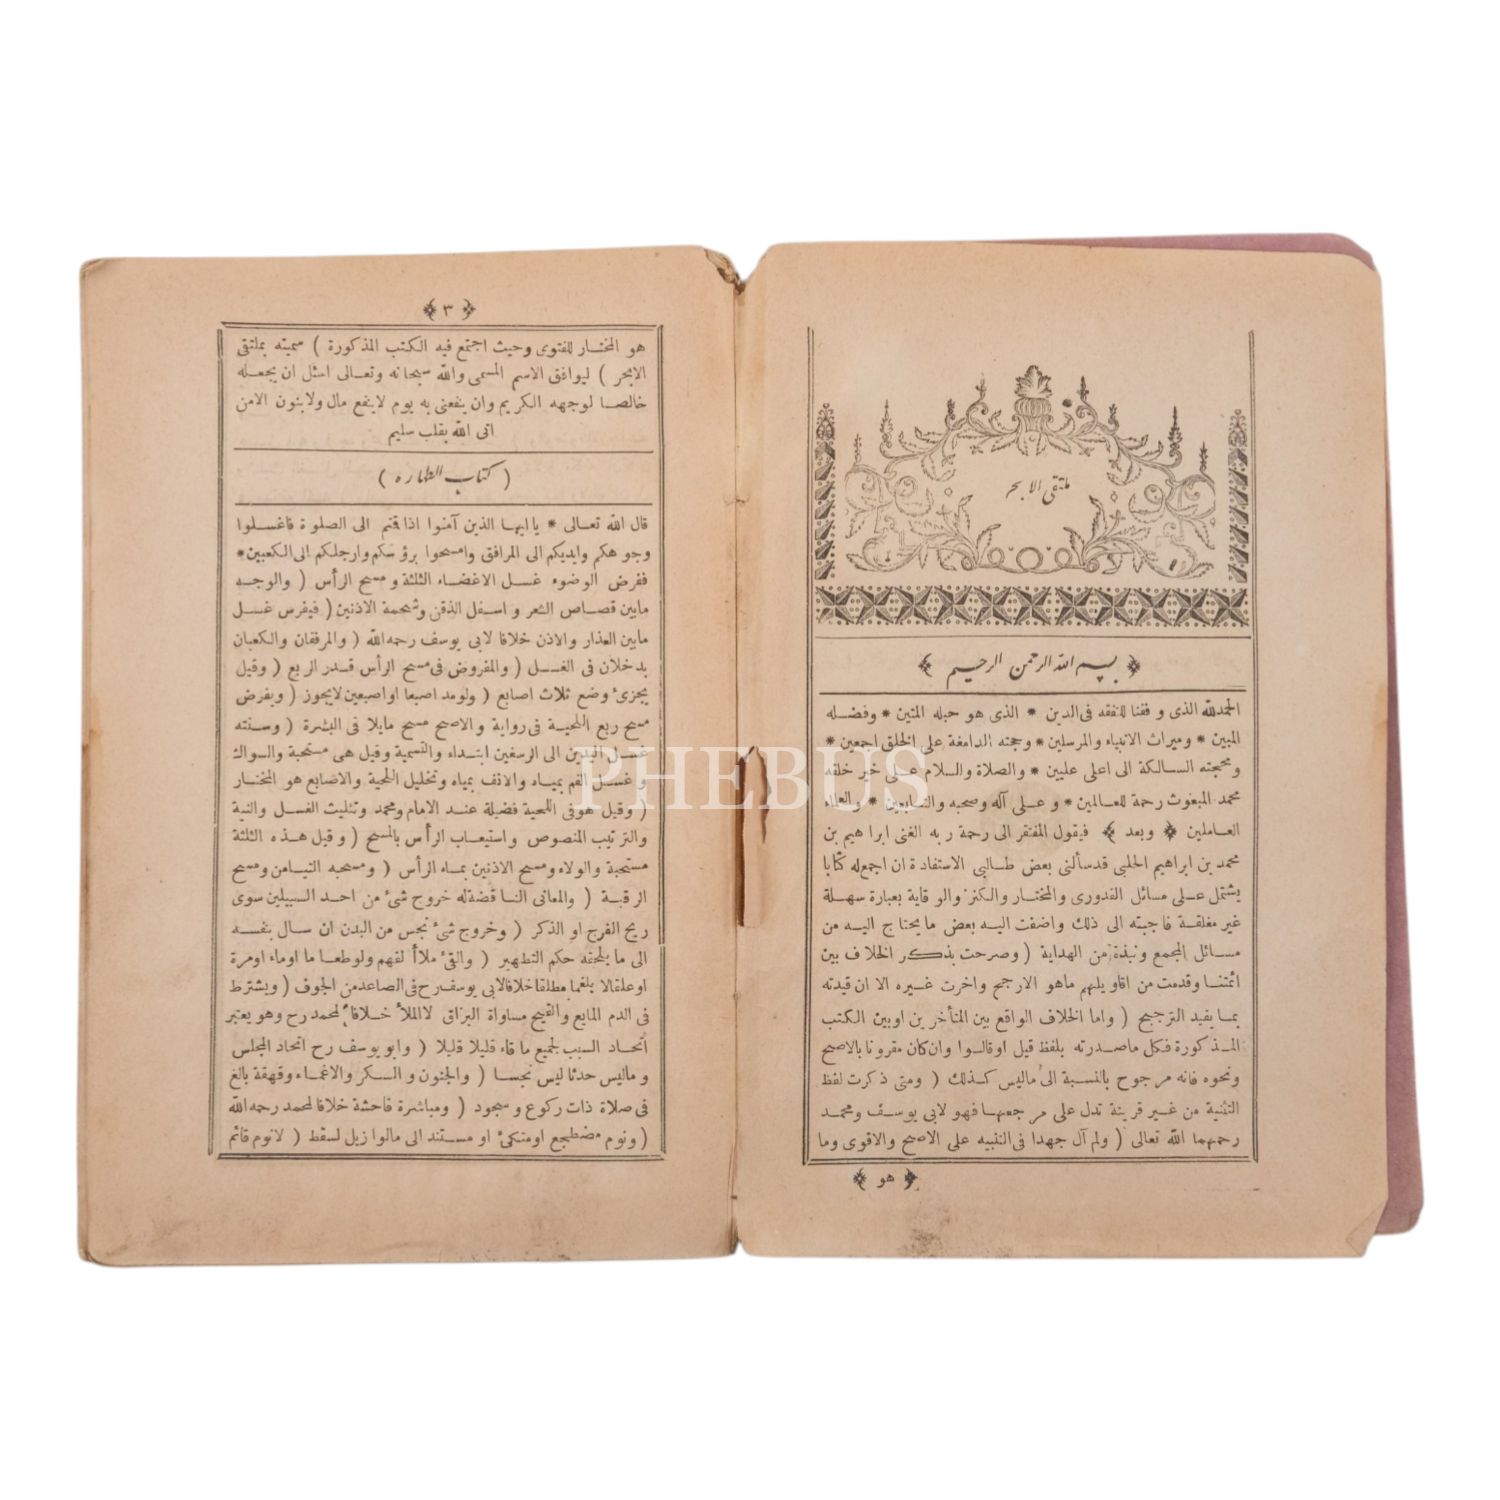 ملتقى الابحر
بسم الله الرحمن الرحيم
الحمدلله الذى وفقنا للتفقه فى الدين * الذى هو حبله المتين * وفضله
المبين * وميراث الانبياء والمرسلين * وحجته الدامغة على الخلق اجمعين *
ومحجته السالكة الى اعلى عليين * والصلاة والسلام على خير خلقه
محمد المبعوث رحمة للعالمين * وعلى آله وصحبه والتابعين * والعلماء
العاملين ﴿ وبعد ﴾ فيقول المفتقر الى رحمة ربه الغنى ابراهيم بن
محمد بن ابراهيم الحلبى قدسألنى بعض طالبى الاستفادة ان اجمع له كتابا
يشتمل على مسائل القدورى والمختار والكنز والوقاية بعبارة سهلة
غير مغلقة فاجبته الى ذلك واضفت اليه بعض مايحتاج اليه من
مسائل المجمع ونبذة من الهداية ( وصرحت بذكر الخلاف بين
ائمتنا وقدمت من اقاويلهم ماهو الارجح واخرت غيره الا ان قيدته
بما يفيد الترجيح ( واما الخلاف الواقع بين المتأخرين اوبين الكتب
المذكورة فكل ماصدرته بلفظ قيل اوقالوا وان كان مقرونا بالاصح
ونحوه فانه مرجوح بالنسبة الى ماليس كذلك ( ومتى ذكرت لفظ
التثنية من غير قرينة تدل على مرجعها فهو لابى يوسف ومحمد
رحمهما الله تعالى ( ولم آل جهدا فى التنبيه على الاصح والاقوى وما
﴿ هو ﴾
﴿ ٣ ﴾
هو المختار للفتوى وحيث اجتمع فيه الكتب المذكورة ) سميته بملتقى
الابحر ) ليوافق الاسم المسمى والله سبحانه وتعالى اسئل ان يجعله
خالصا لوجهه الكريم وان ينفعنى به يوم لاينفع مال ولابنون الامن
اتى الله بقلب سليم
( كتاب الطهاره )
قال الله تعالى * يا ايها الذين آمنوا اذا قمتم الى الصلوة فاغسلوا
وجوهكم وايديكم الى المرافق وامسحوا برؤسكم وارجلكم الى الكعبين *
ففرض الوضوء غسل الاعضاء الثلثة ومسح الرأس ( والوجه
مابين قصاص الشعر واسفل الذقن وشحمة الاذنين ( فيفرس غسل
مابين العذار والاذن خلافا لابى يوسف رحمه الله ( والمرفقان والكعبان
يدخلان فى الغسل ( والمفروض فى مسح الرأس قدر الربع ( وقيل
يجزئ وضع ثلاث اصابع ( ولومد اصبعا او اصبعين لايجوز ( ويفرض
مسح ربع اللحية فى رواية والاصح مسح مايلا فى البشرة ( وسنته
غسل اليدين الى الرسغين ابتداء والتسمية وقيل هى مستحبة والسواك
وغسل الفم بمياه والانف بمياه وتخليل اللحية والاصابع هو المختار
( وقيل هو فى اللحية فضيلة عند الامام ومحمد وتثليث الغسل والنية
والترتيب المنصوص واستيعاب الرأس بالمسح ( وقيل هذه الثلثة
مستحبة والولاء ومسح الاذنين بماء الرأس ( ومستحبه التيامن ومسح
الرقبة ( والمعانى الناقضة له خروج شئ من احد السبيلين سوى
ريح الفرج او الذكر ( وخروج شئ نجس من البدن ان سال بنفسه
الى ما يلحقه حكم التطهير ( والقئ ملأ الفم ولو طعاما او ماء او مرة
او علقا لا بلغما مطلقا خلافا لابى يوسف رح فى الصاعد من الجوف ( ويشترط
فى الدم المايع والقيح مساواة البزاق لا الملأ خلافا لمحمد رح وهو يعتبر
اتحاد السبب لجميع ما قاء قليلا قليلا ( وابو يوسف رح اتحاد المجلس
وماليس حدثا ليس نجسا ( والجنون والسكر والاغماء وقهقهة بالغ
فى صلاة ذات ركوع وسجود ( ومباشرة فاحشة خلافا لمحمد رحمه الله
( ونوم مضطجع او متكئ او مستند الى مالوازيل لسقط ( لانوم قائم
PHEBUS